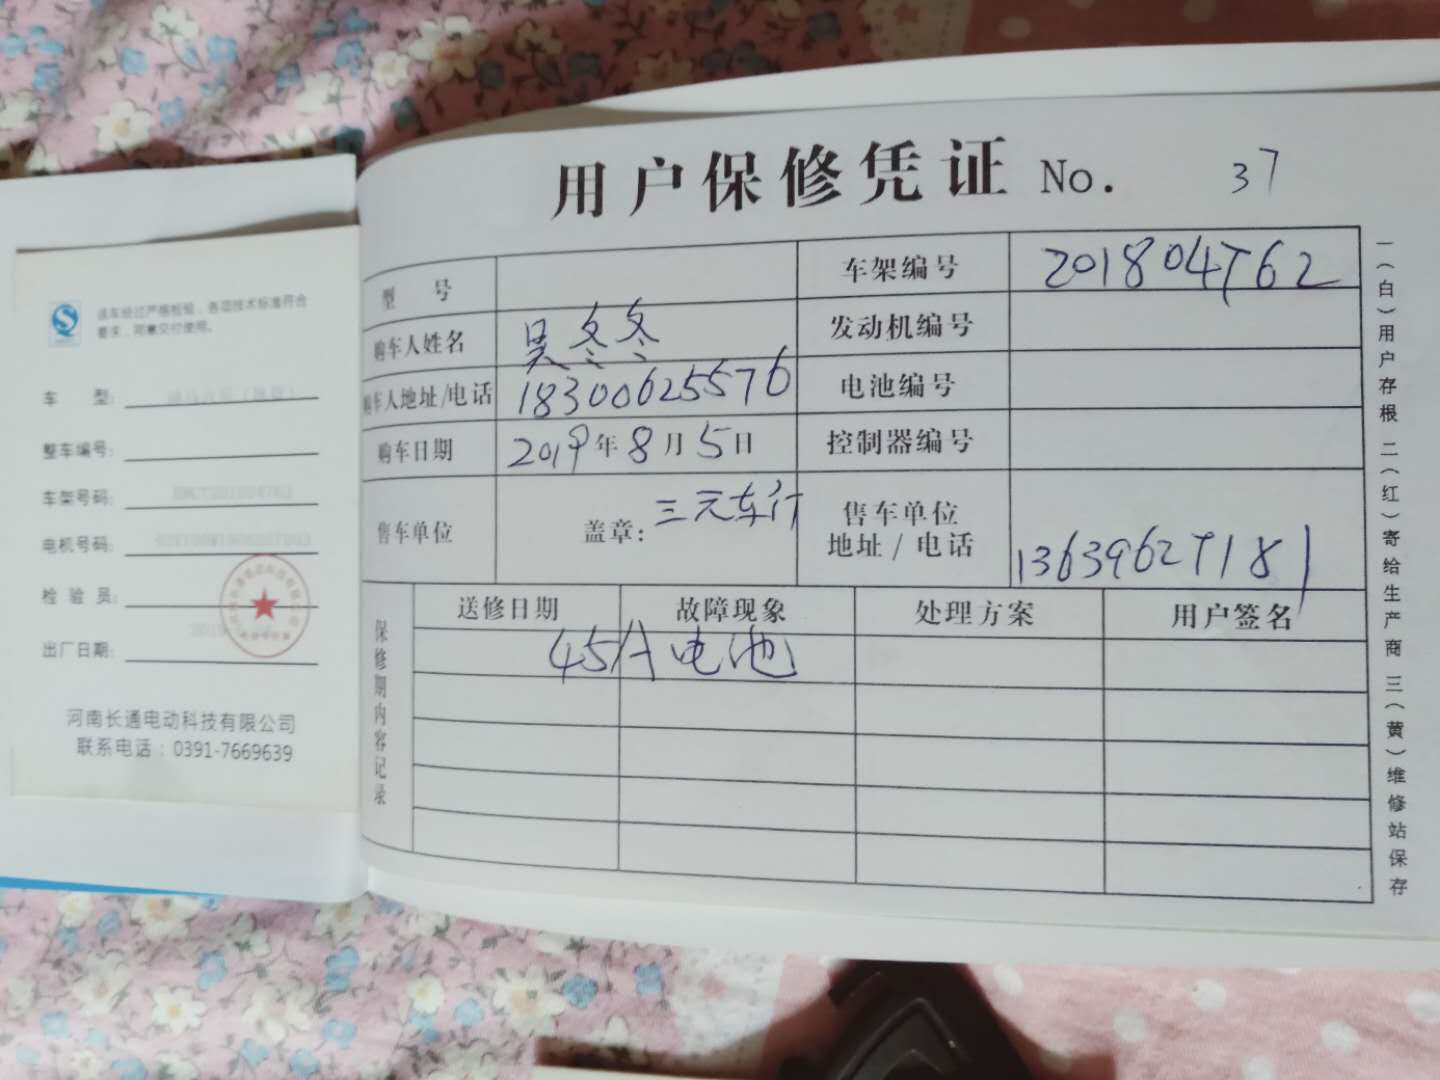 该车经过严格检验，各项技术标准符合
要求，同意交付使用。
车 型：
整车编号：
车架号码：
电机号码：
检 验 员：
出厂日期：
河南长通电动科技有限公司
联系电话：0391-7669639
用户保修凭证 No. 37
型 号
车架编号 201804762
购车人姓名 吴冬冬
发动机编号
购车人地址/电话 18300625576
电池编号
购车日期 2019年8月5日
控制器编号
售车单位 盖章：三元车行
售车单位
地址/电话 13639627181
保修期内容记录
送修日期 故障现象 处理方案 用户签名
45A电池
一(白)用户存根 二(红)寄给生产商 三(黄)维修站保存